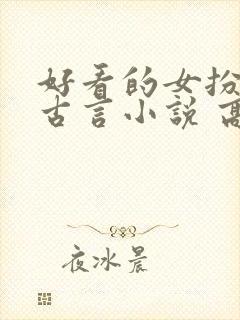 好看的女扮
古言小说 高
夜冰晨